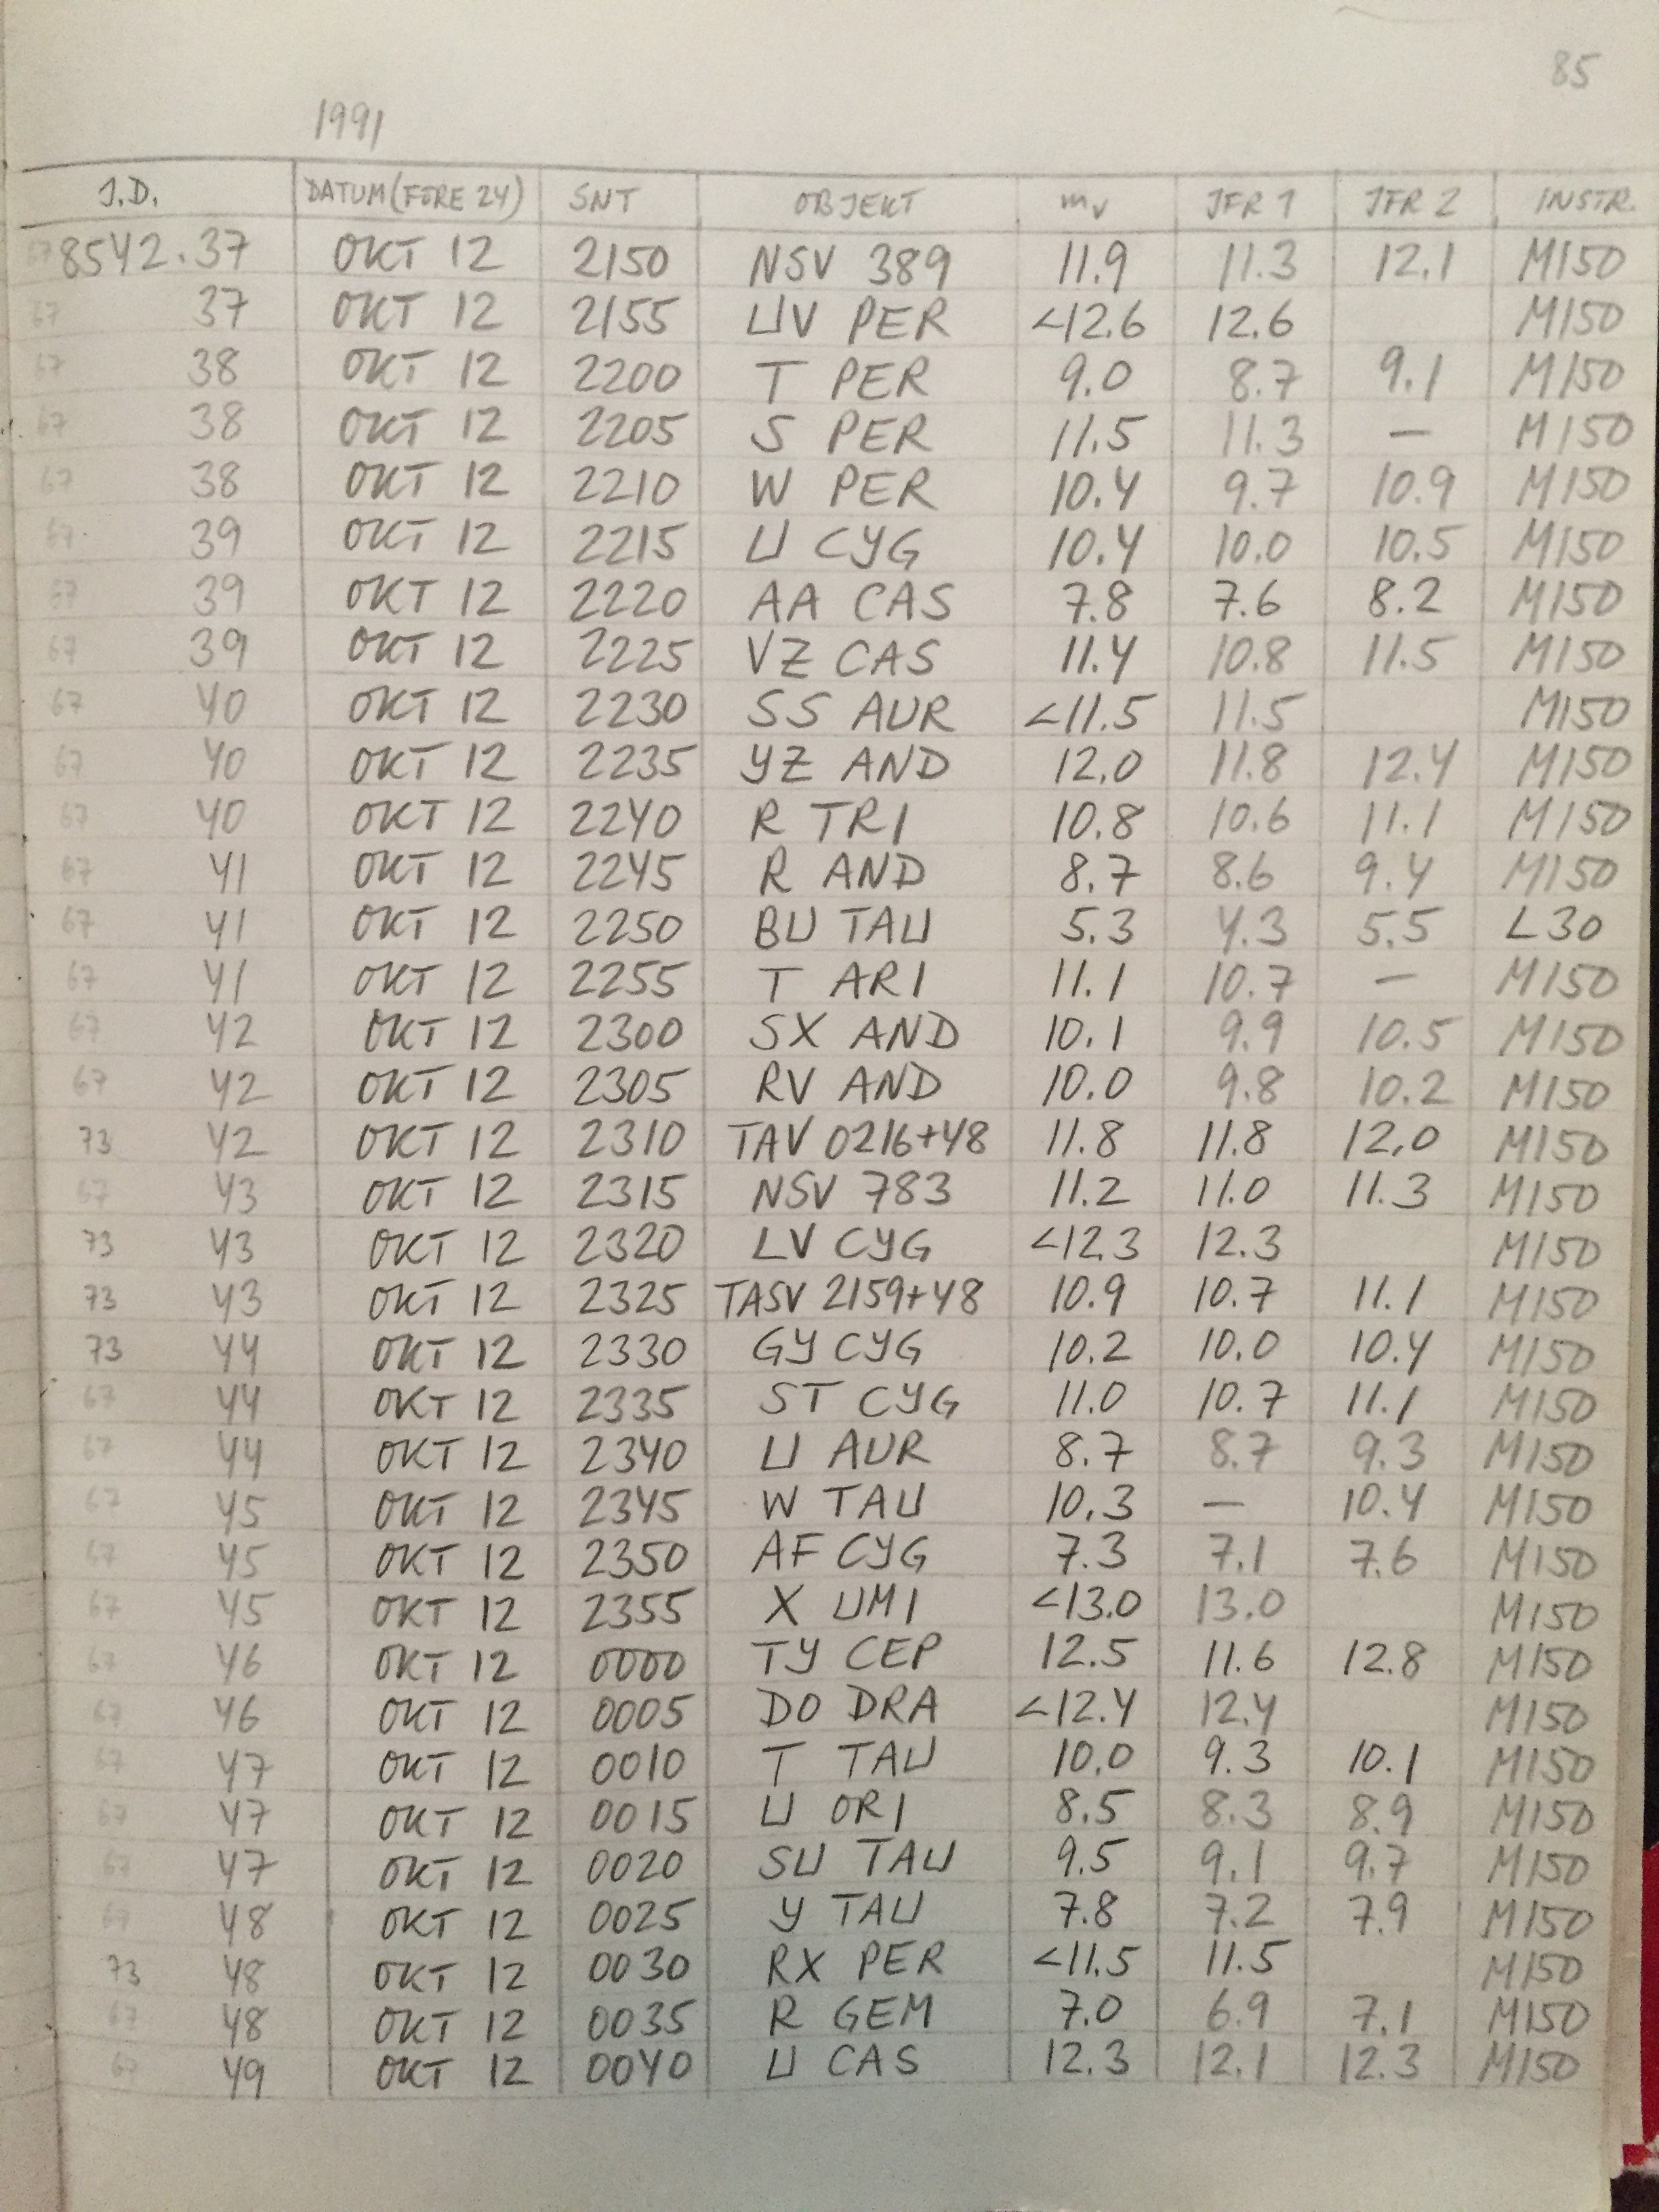 85
1991
J.D. DATUM(FÖRE 24) SNT OBJEKT mv JFR 1 JFR 2 INSTR.
67 8542.37 OKT 12 2150 NSV 389 11.9 11.3 12.1 M150
67 37 OKT 12 2155 UV PER <12.6 12.6 M150
67 38 OKT 12 2200 T PER 9.0 8.7 9.1 M150
67 38 OKT 12 2205 S PER 11.5 11.3 — M150
67 38 OKT 12 2210 W PER 10.4 9.7 10.9 M150
67 39 OKT 12 2215 U CYG 10.4 10.0 10.5 M150
67 39 OKT 12 2220 AA CAS 7.8 7.6 8.2 M150
67 39 OKT 12 2225 VZ CAS 11.4 10.8 11.5 M150
67 40 OKT 12 2230 SS AUR <11.5 11.5 M150
67 40 OKT 12 2235 YZ AND 12.0 11.8 12.4 M150
67 40 OKT 12 2240 R TRI 10.8 10.6 11.1 M150
67 41 OKT 12 2245 R AND 8.7 8.6 9.4 M150
67 41 OKT 12 2250 BU TAU 5.3 4.3 5.5 L30
67 41 OKT 12 2255 T ARI 11.1 10.7 — M150
67 42 OKT 12 2300 SX AND 10.1 9.9 10.5 M150
67 42 OKT 12 2305 RV AND 10.0 9.8 10.2 M150
73 42 OKT 12 2310 TAV 0216+48 11.8 11.8 12.0 M150
67 43 OKT 12 2315 NSV 783 11.2 11.0 11.3 M150
73 43 OKT 12 2320 LV CYG <12.3 12.3 M150
73 43 OKT 12 2325 TASV 2159+48 10.9 10.7 11.1 M150
73 44 OKT 12 2330 GY CYG 10.2 10.0 10.4 M150
67 44 OKT 12 2335 ST CYG 11.0 10.7 11.1 M150
67 44 OKT 12 2340 U AUR 8.7 8.7 9.3 M150
67 45 OKT 12 2345 W TAU 10.3 — 10.4 M150
67 45 OKT 12 2350 AF CYG 7.3 7.1 7.6 M150
67 45 OKT 12 2355 X UMI <13.0 13.0 M150
67 46 OKT 12 0000 TY CEP 12.5 11.6 12.8 M150
67 46 OKT 12 0005 DO DRA <12.4 12.4 M150
67 47 OKT 12 0010 T TAU 10.0 9.3 10.1 M150
67 47 OKT 12 0015 U ORI 8.5 8.3 8.9 M150
67 47 OKT 12 0020 SU TAU 9.5 9.1 9.7 M150
67 48 OKT 12 0025 Y TAU 7.8 7.2 7.9 M150
73 48 OKT 12 0030 RX PER <11.5 11.5 M150
67 48 OKT 12 0035 R GEM 7.0 6.9 7.1 M150
67 49 OKT 12 0040 U CAS 12.3 12.1 12.3 M150